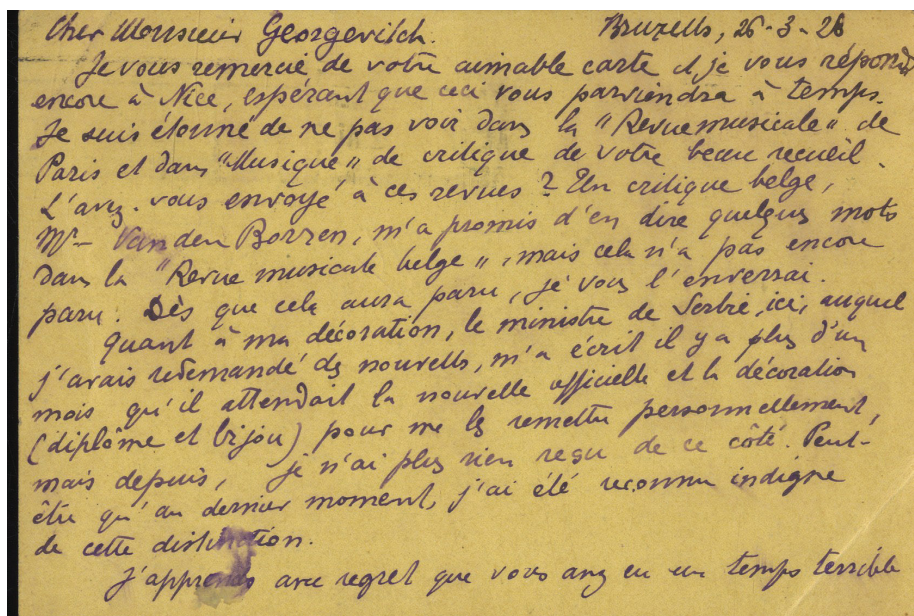 Cher Monsieur Georgevitch. Bruxelles, 26-3-28
Je vous remercie de votre aimable carte et je vous réponds
encore à Nice, espérant que ceci vous parviendra à temps.
Je suis étonné de ne pas voir dans la "Revue musicale" de
Paris et dans "Musique" de critique de votre beau recueil.
L'avez-vous envoyé à ces revues? Un critique belge,
Mr Van den Borren, m'a promis d'en dire quelques mots
dans la "Revue musicale belge", mais cela n'a pas encore
paru. Dès que cela aura paru, je vous l'enverrai.
Quant à ma décoration, le ministre de Serbie, ici, auquel
j'avais redemandé des nouvelles, m'a écrit il y a plus d'un
mois qu'il attendait la nouvelle officielle et la décoration
(diplôme et bijou) pour me les remettre personnellement,
mais depuis, je n'ai plus rien reçu de ce côté. Peut-
être qu'au dernier moment, j'ai été reconnu indigne
de cette distinction.
J'apprends avec regret que vous avez eu un temps terrible